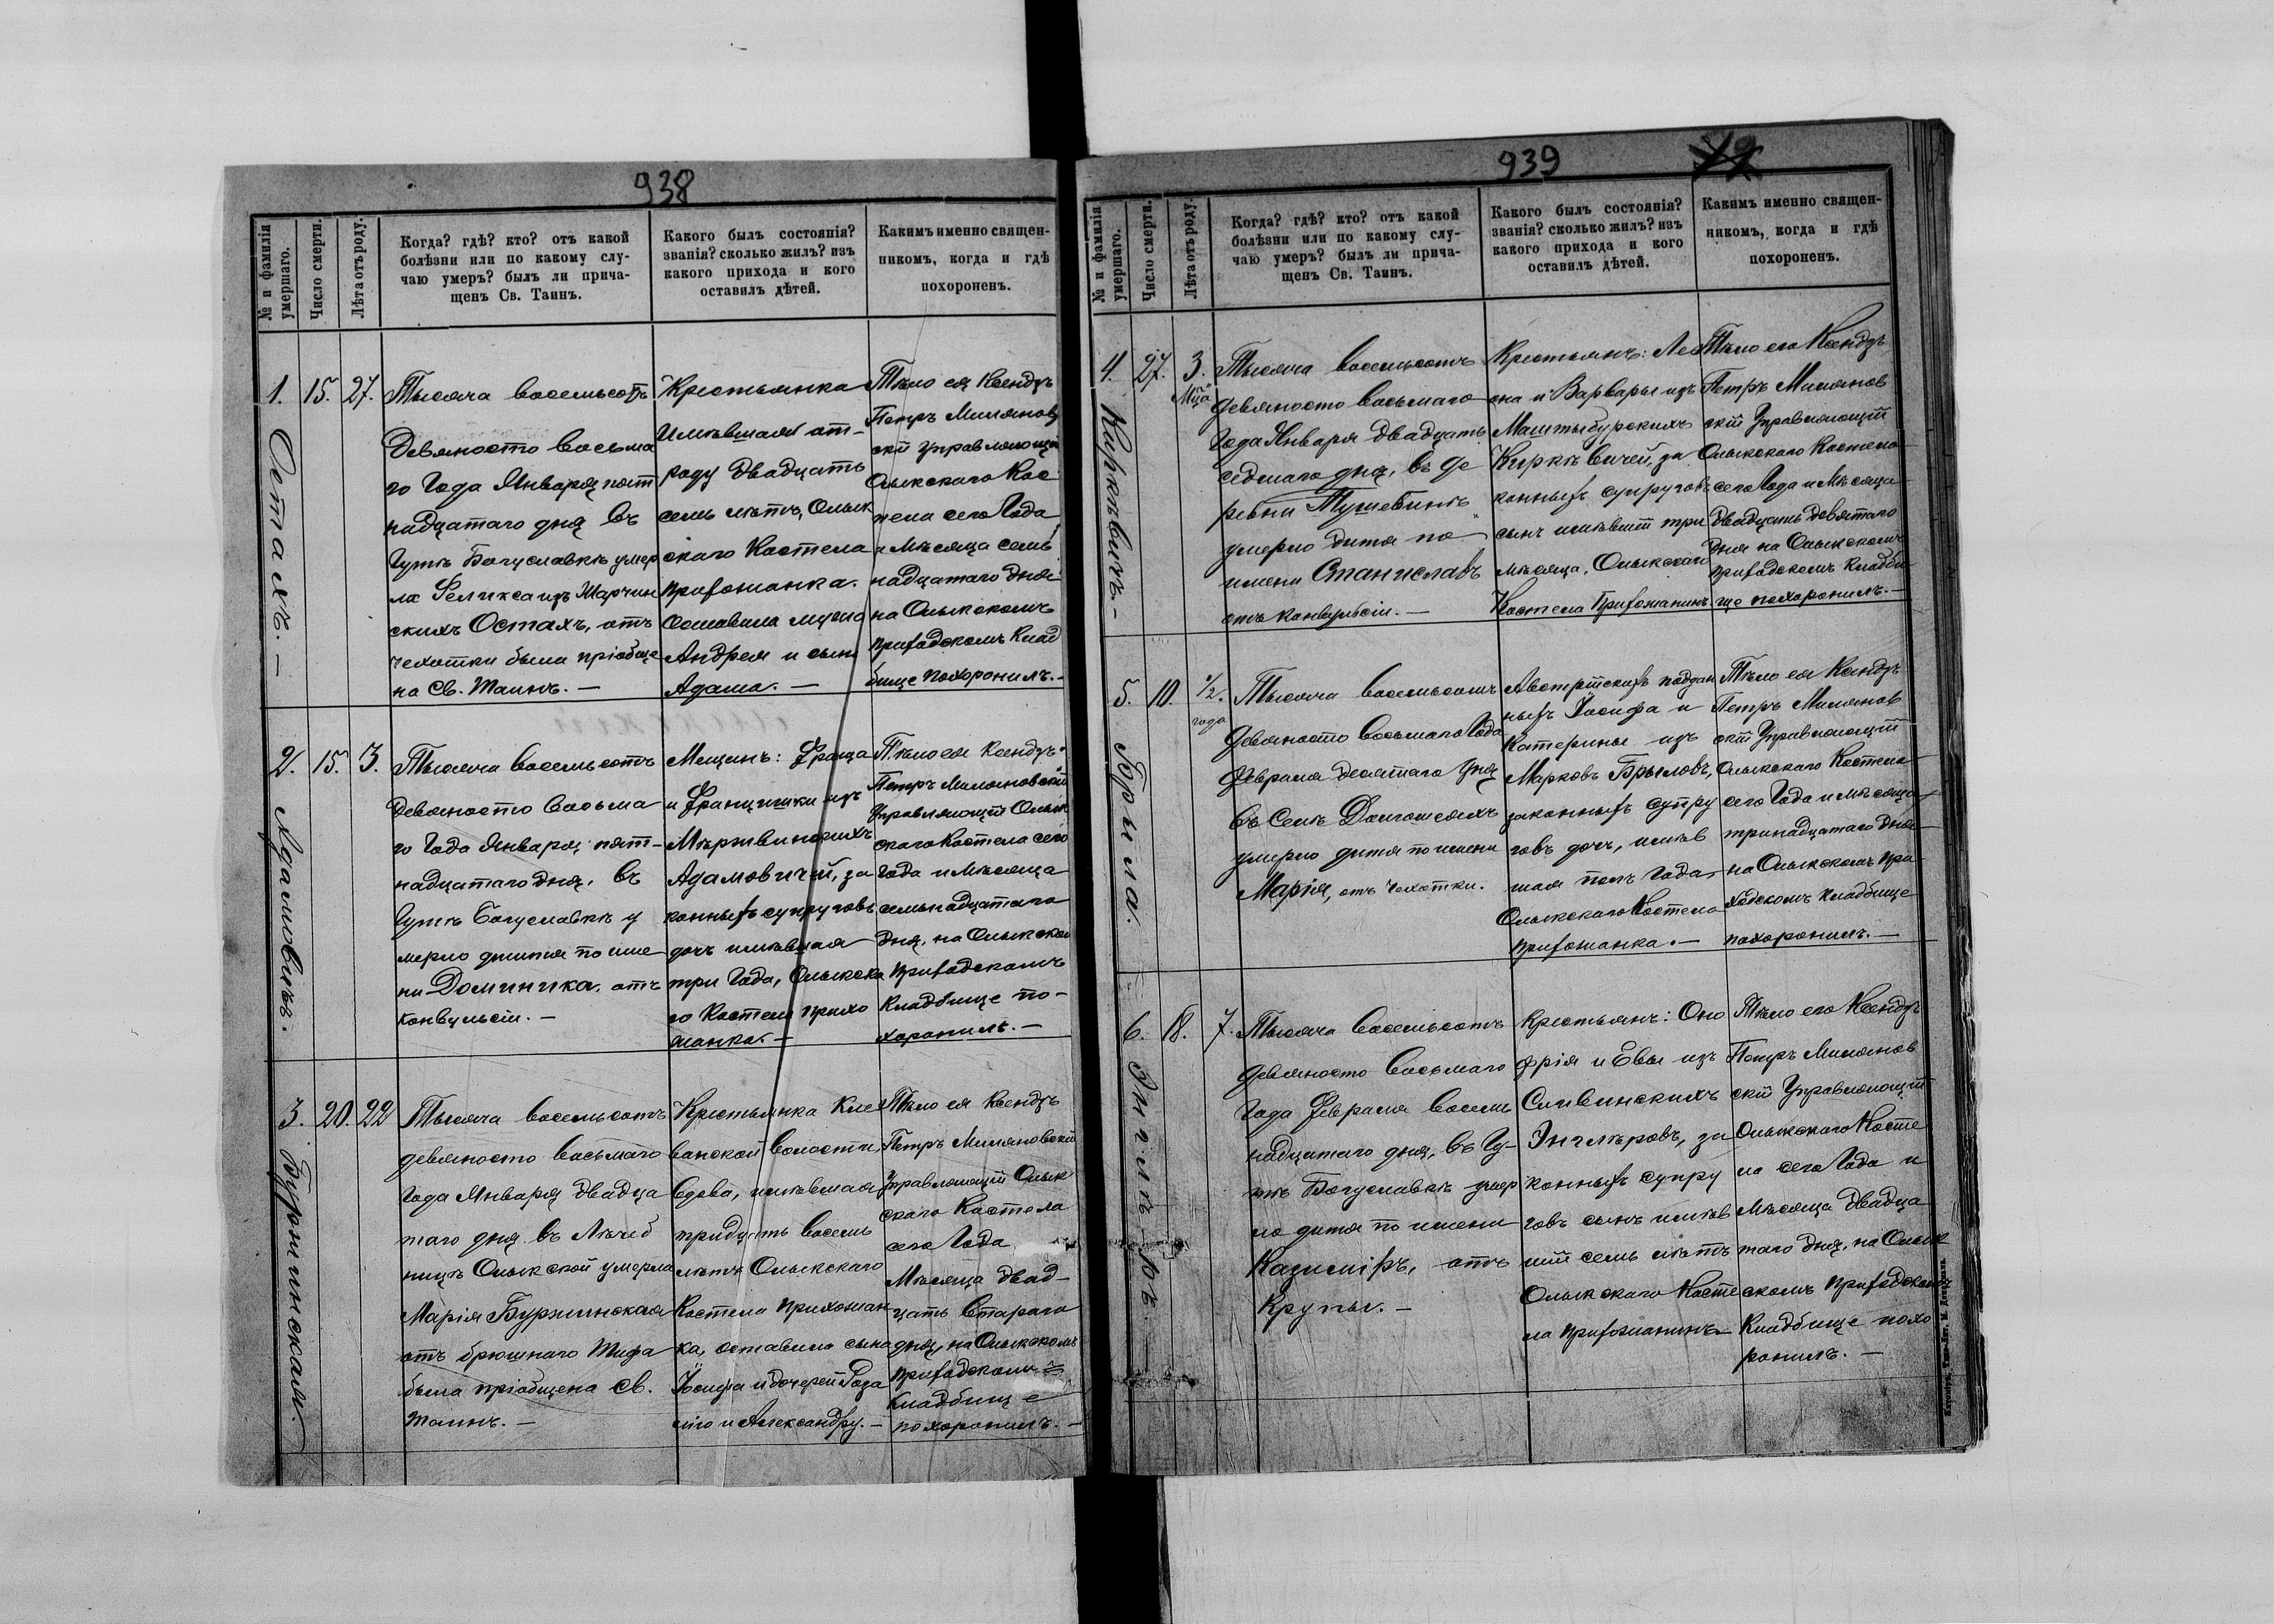 938
№ и фамилія
умершаго.
Число смерти.
Лѣта отъ роду.
Когда? гдѣ? кто? отъ какой
болѣзни или по какому слу-
чаю умеръ? былъ ли прича-
щенъ Св. Таинъ.
Какого былъ состоянія?
званія? сколько жилъ? изъ
какого прихода и кого
оставилъ дѣтей.
Какимъ именно священ-
никомъ, когда и гдѣ
похороненъ.
1.
Остахъ. —
15.
27.
Тысяча восемьсотъ
девяносто восьма
го Года Января пят
надцатаго дня въ
Гутѣ Богуславкѣ умер
ла Феликса изъ Марчин
скихъ Остахъ, отъ
чехотки была пріобще
на Св. Таинъ. —
Крестьянка
имѣвшая от-
роду двадцать
семь лѣтъ, Олык
скаго Костела
прихожанка.
Оставила мужа
Андрея и сына
Адама. —
Тѣло ея Ксендзъ
Петръ Миляновс
кій Управляющій
Олыкскаго Кос
тела сего Года
и Мѣсяца семь
надцатаго дня
на Олыкскомъ
приходскомъ Клад
бище похоронилъ. —
2.
Адамовичъ.
15.
3.
Тысяча восемьсотъ
девяносто восьма
го Года Января пят-
надцатаго дня, въ
Гутѣ Богуславкѣ у
мерло дитя по име
ни Доминика, отъ
конвульсіи. —
Мещанъ: Франца
и Францишки изъ
Мѣржвинскихъ
Адамовичей, за
конныхъ супруговъ
дочъ имѣвшая
три Года, Олыкска
го Костела прихо
жанка. —
Тѣло ея Ксендзъ
Петръ Миляновскій
Управляющій Олык
скаго Костела сего
Года и Мѣсяца
семьнадцатаго
дня, на Олыкском
приходскомъ
Кладбище по-
хоронилъ. —
3.
Буржиминская.
20.
22
Тысяча восемьсотъ
девяносто восьмаго
Года Января двадца
таго дня въ Лѣчеб
ницѣ Олыкской умерла
Марія Буржинская
отъ брюшнаго тифа
была пріобщена Св.
Таинъ. —
Крестьянка Кле
ванской волости,
вдова, имѣвшая
тридцать восемь
лѣтъ Олыкскаго
Костела прихожан
ка, оставила сына
Іосифа и дочерей Роза
лію и Александру. —
Тѣло ея Ксендзъ
Петръ Миляновскій
Управляющій Олык
скаго Костела
сего Года
Мѣсяца двад-
цать втараго
дня, на Олыкскомъ
приходскомъ
Кладбище
похоронилъ. —
939
№ и фамилія
умершаго.
Число смерти.
Лѣта отъ роду.
Когда? гдѣ? кто? отъ какой
болѣзни или по какому слу-
чаю умеръ? былъ ли прича-
щенъ Св. Таинъ.
Какого былъ состоянія?
званія? сколько жилъ? изъ
какого прихода и кого
оставилъ дѣтей.
Какимъ именно священ-
никомъ, когда и гдѣ
похороненъ.
4.
Киркѣвичъ. —
27.
3.
Мца
Тысяча восемьсотъ
девяносто восьмаго
Года Января двадцать
седмаго дня, въ де
ревни
умерло дитя по
имени Станиславъ
отъ конвульсіи. —
Крестьянъ: Лео
на и Варвары изъ
Маштыбурскихъ
Киркѣвичей, за
конныхъ супруговъ
сынъ имѣвшій три
мѣсяца, Олыкскаго
Костела Прихожанинъ.
Тѣло его Ксендзъ
Петръ Милянов
скій Управляющій
Олыкскаго Костела
сего Года и Мѣсяца
двадцать девятаго
дня на Олыкскомъ
приходскомъ Кладби
ще похоронилъ. —
5.
Брыла.
10.
1/2.
года
Тысяча восемьсотъ
девяносто восьмаго Года
Февраля десятаго дня
въ Селѣ Долгошеяхъ
умерло дитя по имени
Марія, отъ чехотки.
Австрійскихъ поддан
ныхъ Іосифа и
Катерины изъ
Марковъ Брыловъ,
законныхъ супру
говъ дочъ, имѣв
шая полъ Года
Олыкскаго Костела
прихожанка. —
Тѣло ея Ксендзъ
Петръ Милянов
скій Управляющій
Олыкскаго Костела
сего Года и мѣсяца
тринадцатаго дня
на Олыкскомъ при
ходскомъ Кладбище
похоронилъ. —
6.
18.
7.
Тысяча восемьсотъ
девяносто восьмаго
Года Февраля восемь
надцатаго дня, въ Гу-
тѣ Богуславкѣ умер
ло дитя по имени
Казиміръ, отъ
Крупы. —
Крестьянъ: Оно
фрія и Евы изъ
Сливинскихъ
Энглѣровъ, за
конныхъ супру
говъ сынъ имѣв
шій семь лѣтъ
Олыкскаго Косте
ла прихожанинъ
Тѣло его Ксендзъ
Петръ Милянов
скій Управляющій
Олыкскаго Косте
ла сего Года и
Мѣсяца двадца
таго дня, на Олык
скомъ приходскомъ
Кладбище похо
ронилъ. —